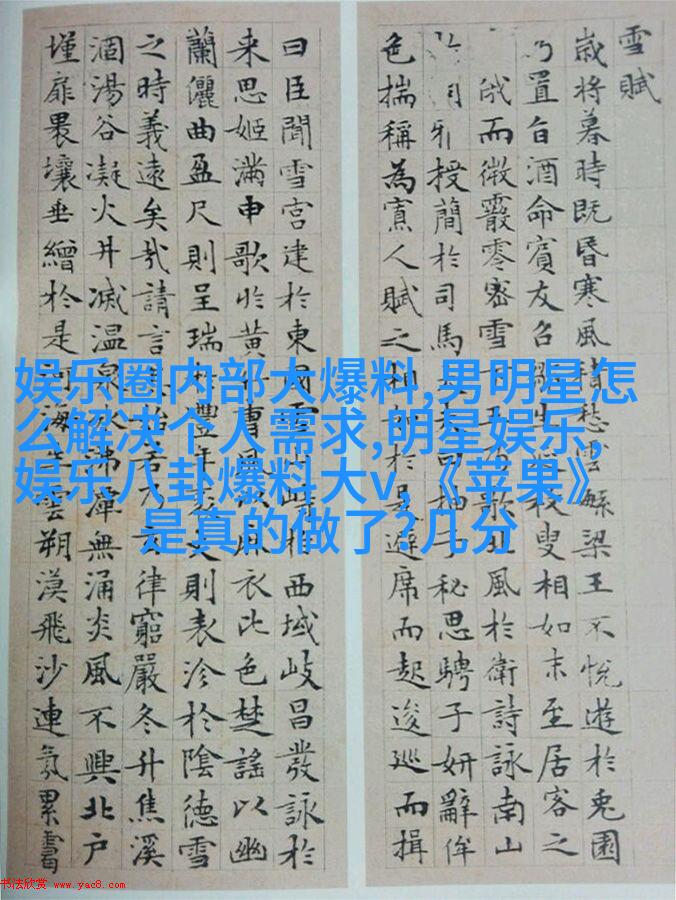 雪賦
歲將暮時既昏寒風積愁雲繁梁王不悅遊於兔園
乃置旨酒命賓友召鄒生延枚叟相如末至居客之
俄而微霰零密雪下王乃歌北風於衛詩詠南山
周雅授簡於司馬大夫曰抽子秘思騁子妍辭侔
色揣稱為寡人賦之相如於是避席而起逡巡而揖
曰臣聞雪宮建於東國雪山峙於西域岐昌發詠於
来思姬滿申歌於黃竹曹風以麻衣比色楚謠以幽
蘭儷曲盈尺則呈瑞於豐年袤丈則表沴於陰德雪
之時義遠矣哉請言其始若乃玄律窮嚴冬升焦溪
涸湯谷凝火井滅温泉冰沸潭無涌炎風不興北户
墐扉裸壤垂繒於是河海生雲朔漠飛沙連氛累靄
娱乐圈内部大爆料,男明星怎
么解决个人需求,明星娱乐,
娱乐八卦爆料大v,《苹果》
是真的做了?几分
书法欣赏 www.yac8.com